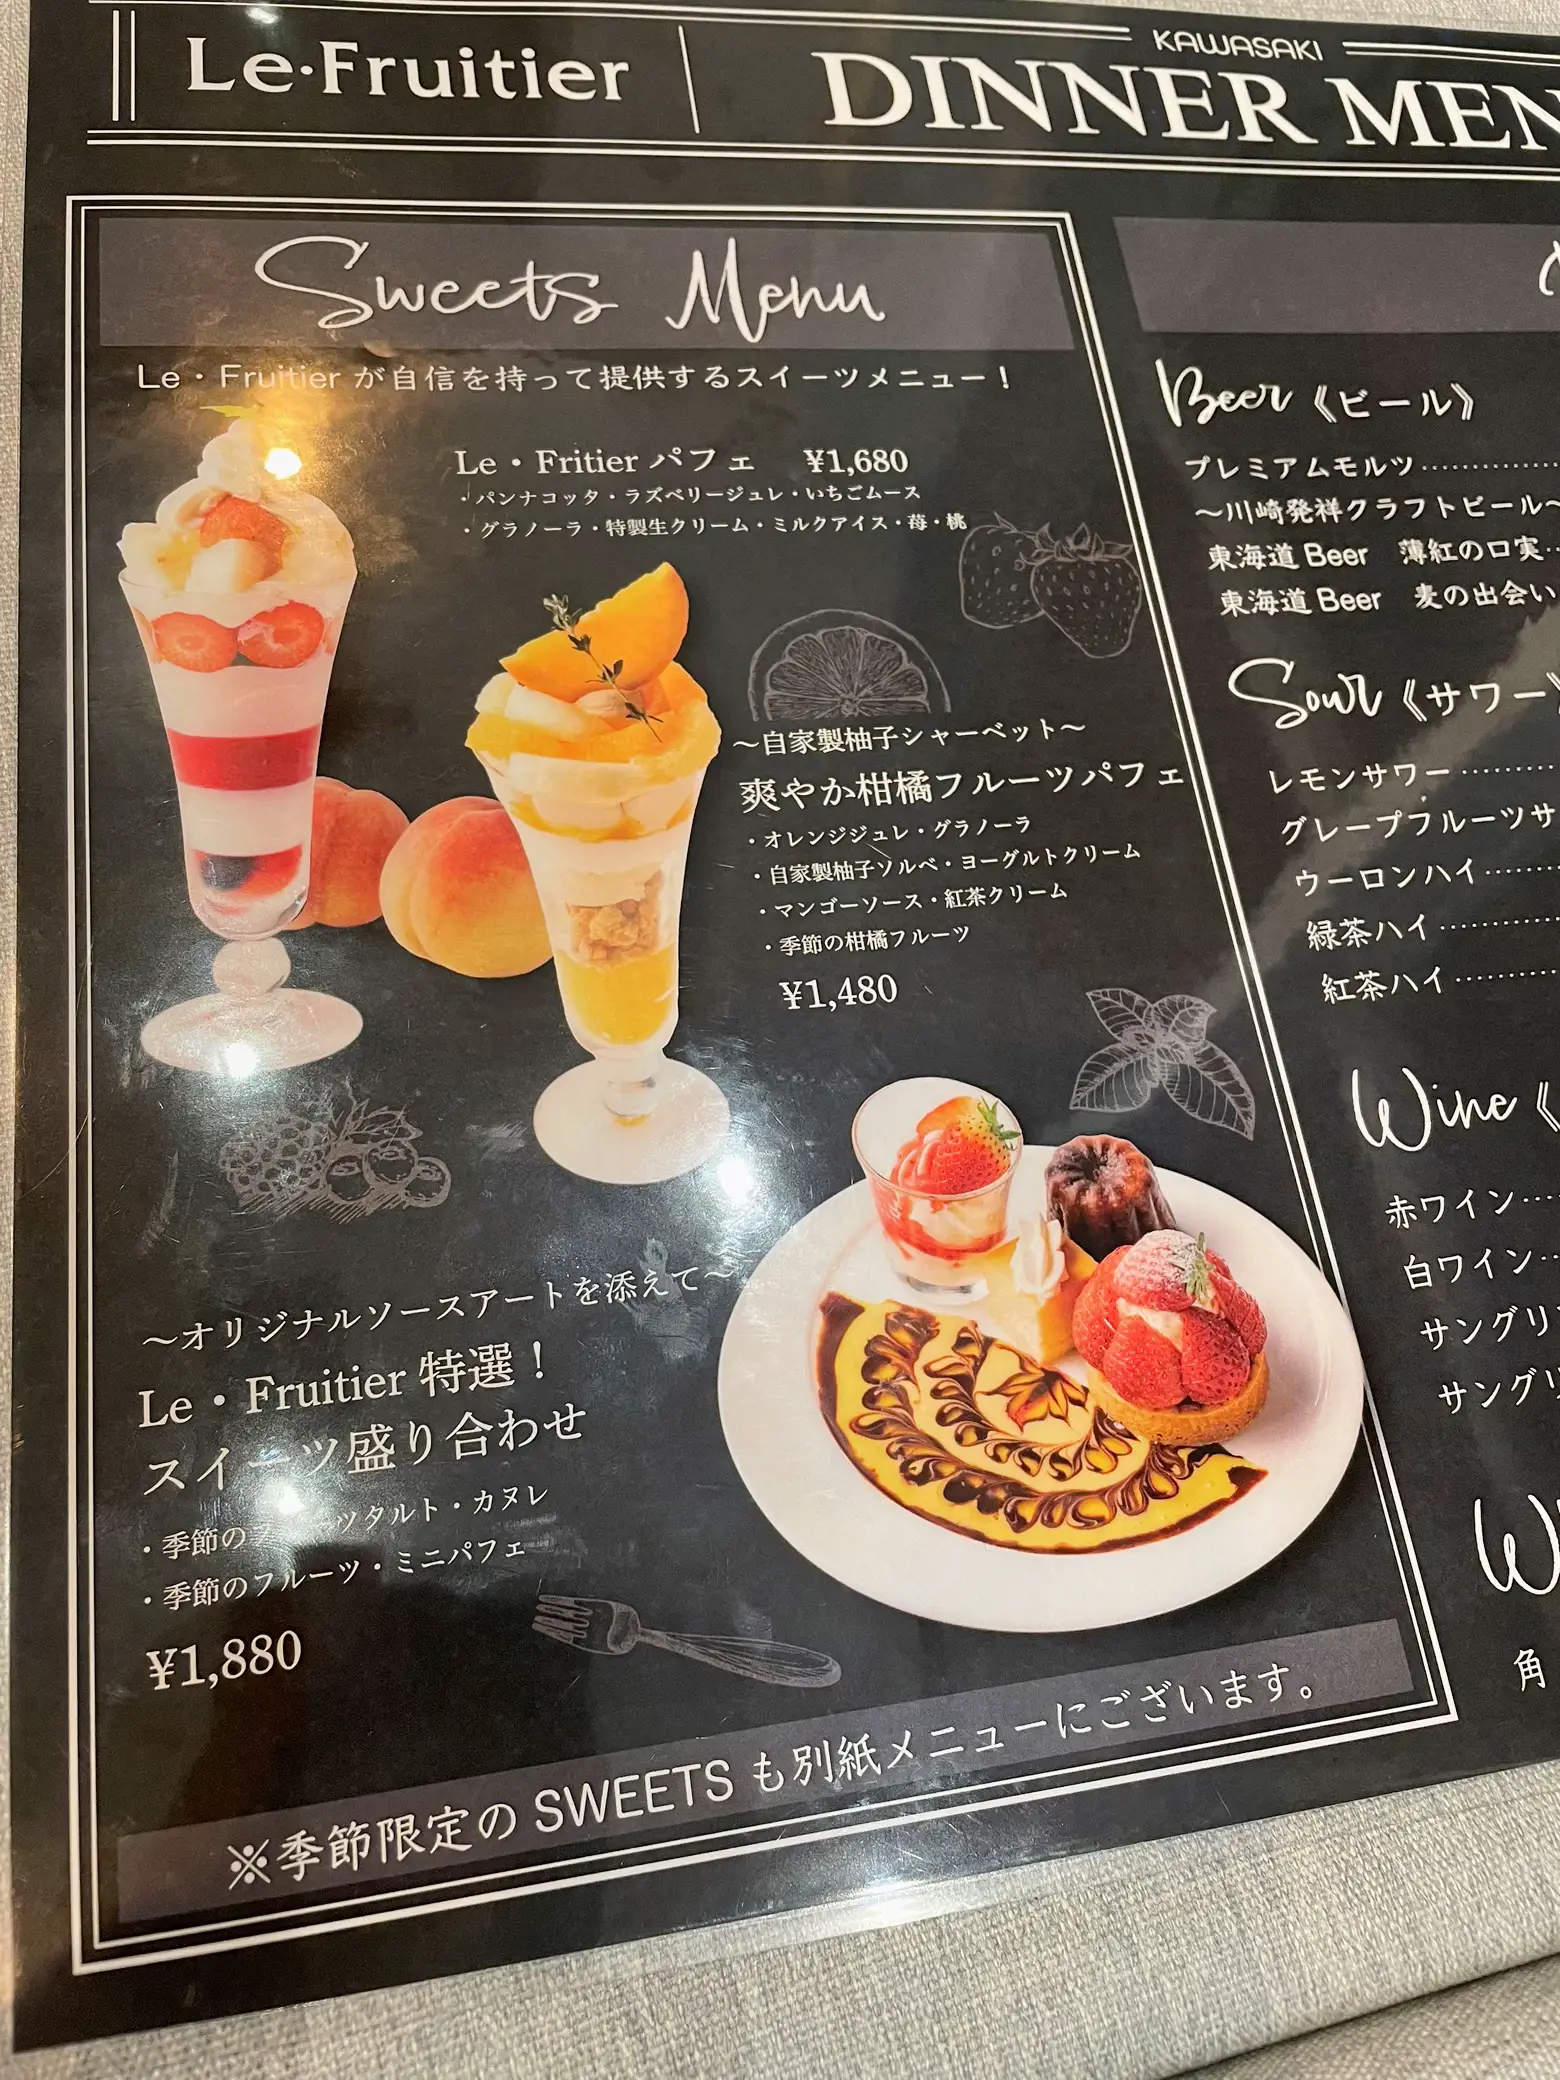 Le·Fruitier
KAWASAKI
DINNER MEN
Sweets Menu
Le・Fruitier が自信を持って提供するスイーツメニュー！
Le・Fritier パフェ ¥1,680
・パンナコッタ・ラズベリージュレ・いちごムース
・グラノーラ・特製生クリーム・ミルクアイス・苺・桃
～自家製柚子シャーベット～
爽やか柑橘フルーツパフェ
・オレンジジュレ・グラノーラ
・自家製柚子ソルベ・ヨーグルトクリーム
・マンゴーソース・紅茶クリーム
・季節の柑橘フルーツ
¥1,480
～オリジナルソースアートを添えて～
Le・Fruitier 特選！
スイーツ盛り合わせ
・季節のフルーツタルト・カヌレ
・季節のフルーツ・ミニパフェ
¥1,880
※季節限定の SWEETS も別紙メニューにございます。
Beer《ビール》
プレミアムモルツ
～川崎発祥クラフトビール～
東海道 Beer 薄紅の口実
東海道 Beer 麦の出会い
Sour《サワー》
レモンサワー
グレープフルーツサ
ウーロンハイ
緑茶ハイ
紅茶ハイ
Wine《
赤ワイン
白ワイン
サングリ
サングリ
角